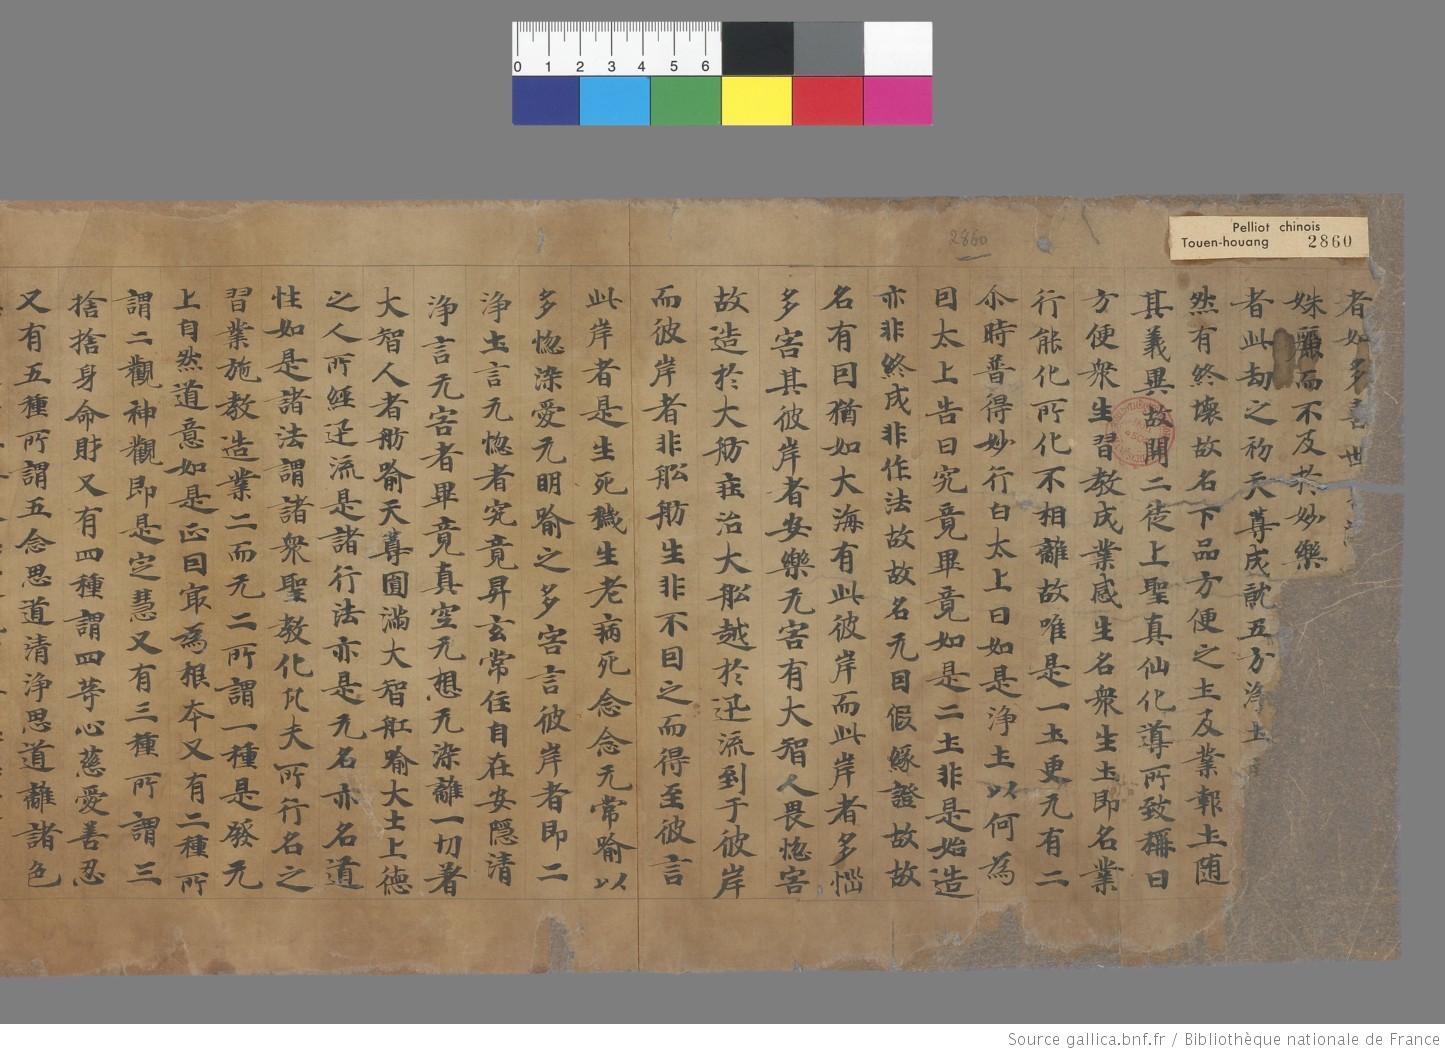 0 1 2 3 4 5 6
Pelliot chinois
Touen-houang 2860
2860
者如多善世
姝麗而不及於妙樂
者此劫之初天尊成就五方淨土
然有終壞故名下品方便之土及業報土随
其義異故開二徒上聖真仙化導所致稱曰
方便衆生習教成業感生名衆生土即名業
行能化所化不相離故唯是一土更无有二
尒時普得妙行白太上曰如是淨土以何為
囙太上告曰究竟畢竟如是二土非是始造
亦非終成非作法故故名无囙假緣證故故
名有囙猶如大海有此彼岸而此岸者多惱
多害其彼岸者安樂无害有大智人畏惚害
故造於大舫治大舩越於迅流到于彼岸
而彼岸者非舩舫生非不囙之而得至彼言
此岸者是生死穢生老病死念念无常喻以
多惚染愛无明喻之多害言彼岸者即二
淨土言无惚者究竟昇玄常住自在安隱清
淨言无害者畢竟真空无想无染離一切著
大智人者舫喻天尊圓滿大智舡喻大士上德
之人所經迅流是諸行法亦是无名亦名道
性如是諸法謂諸衆聖教化凡夫所行名之
習業施教造業二而无二所謂一種是發无
上自然道意如是正囙㝡為根夲又有二種所
謂二觀神觀即是定慧又有三種所謂三
捨捨身命財又有四種謂四等心慈愛善忍
又有五種所謂五念思道清淨思道離諸色
Source gallica.bnf.fr / Bibliothèque nationale de France